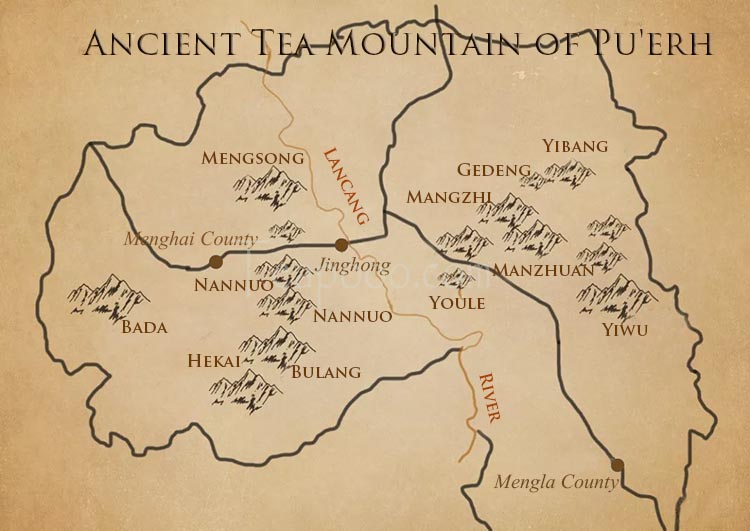 Ancient Tea Mountain of Pu'erh
Yibang
Mengsong
Lancang
Gedeng
Mangzhi
Menghai County
Jinghong
Manzhuan
Nannuo
Youle
Nannuo
Bada
Yiwu
Hekai
Bulang
River
Mengla County